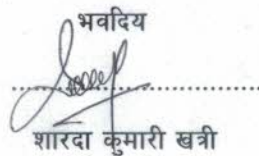 भवदिय
शारदा कुमारी खत्री